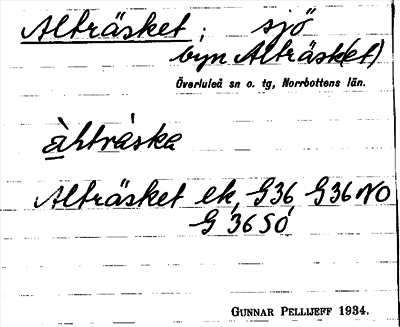 Alträsket; sjö
byn Alträsk(et)
Överluleå sn o. tg, Norrbottens län.
àhtràska
Alträsket ek. G36 G36NO
G 36 SÖ
GUNNAR PELLIJEFF 1934.